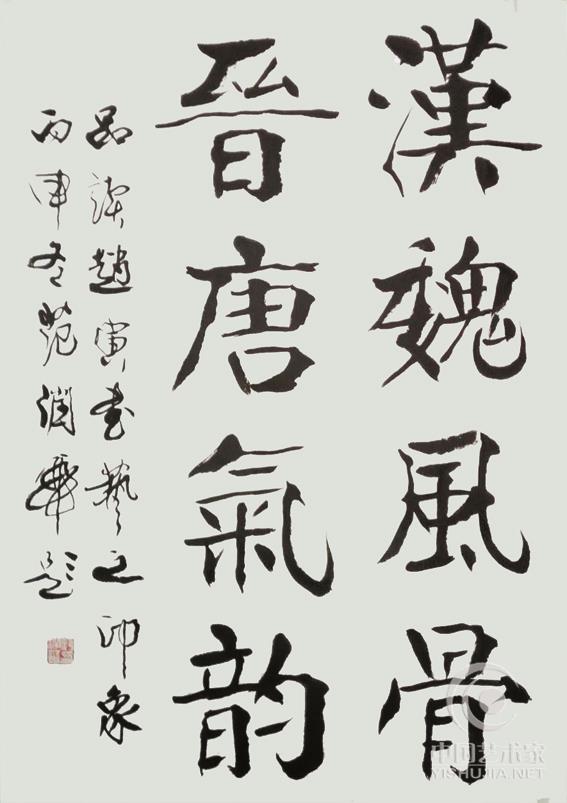 漢魏風骨
晉唐氣韵
品讀趙寅書藝之印象
丙申冬范潤華題
中国艺术家
YISHUJIA.NET